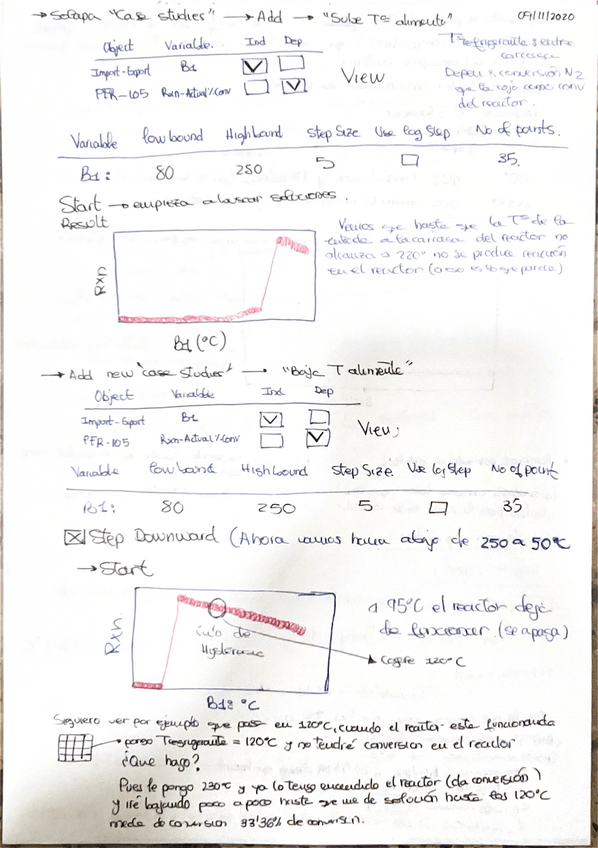 → Solapa "Case studies" → Add → "Sube Tª alimento" 09/11/2020
Object Variable. Ind Dep
Import-Export B1
PFR-105 Rxn-Actual % Conv
View
Tª refrigerante entra
carcasa
conversión N2
que la cojo como conv
del reactor.
Variable low bound High bound step Size Use log Step No of points.
B1: 80 250 5 35.
Start → empieza a buscar soluciones.
Result
Rxn
B1 (°C)
Vemos que hasta que la Tª de la
entrada a la carcasa del reactor no
alcanza a 220° no se produce reacción
en el reactor (o eso es lo que parece)
→ Add new "case studies" → "Baja T alimento"
Object Variable Ind Dep
Import-Export B1
PFR-105 Rxn-Actual % Conv
View;
Variable low bound High bound Step Size. Use log Step No of point
B1: 80 250 5 35
Step Downward (Ahora vamos hacia abajo de 250 a 50°C
→ Start
Rxn.
de
Hysteresis
B1: °C
a 95°C el reactor deja
de funcionar (se apaga)
120°C
Si quiero ver por ejemplo que pasa en 120°C, cuando el reactor este funcionando
pongo Trefrigerante = 120°C y no tendré conversion en el reactor
¿Que hago?
Pues le pongo 230°C y ya lo tengo encendido el reactor (da conversión)
y iré bajando poco a poco hasta que me de solución hasta los 120°C
me da de conversion 93'36% de conversión.